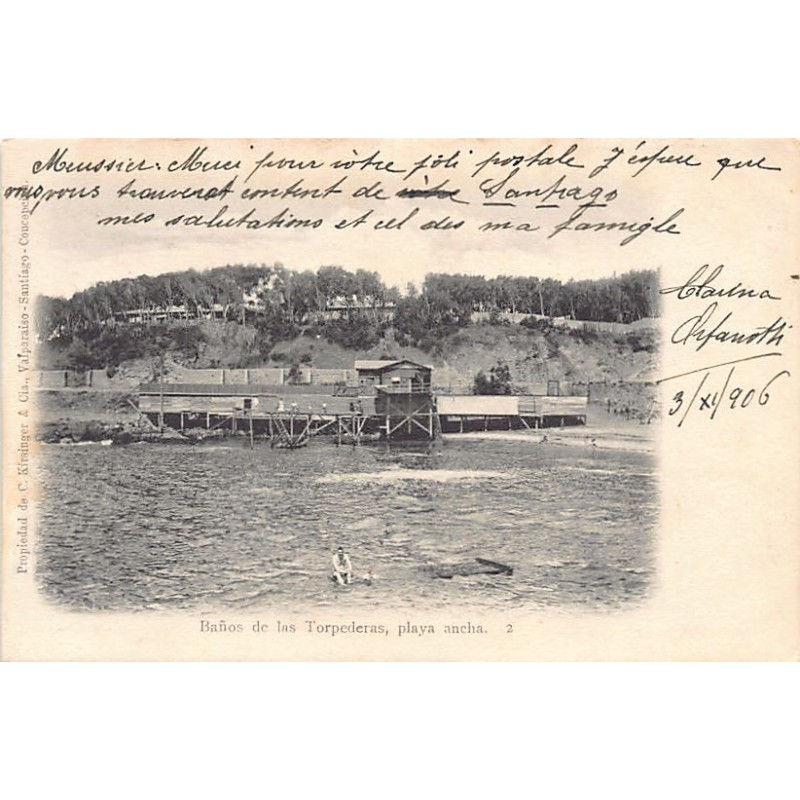 Meussier. Merci pour vôtre jôli postale J'éspere que
vous trouverat content de Santiago
mes salutations et cel des ma famigle
Clarina
Orfanotti
3/XI/906
Propiedad de C. Kirsinger & Cia., Valparaiso - Santiago - Concepción
Baños de las Torpederas, playa ancha. 2